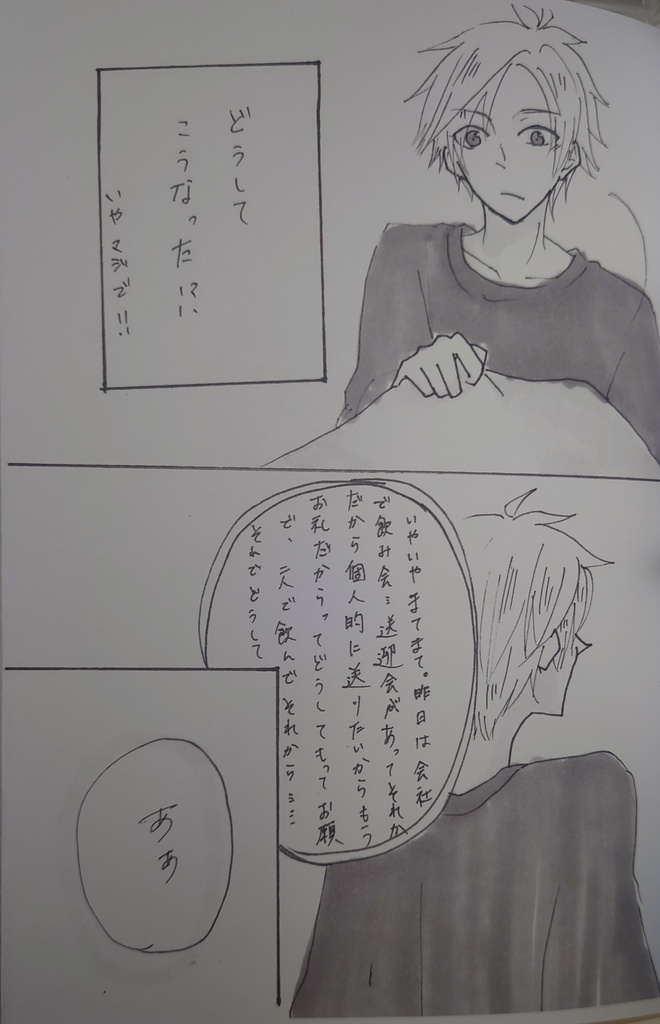 どうして
こうなった!?
いやマジで!!
いやいやまてまて。昨日は会社
で飲み会…送迎会があってそれか
だから個人的に送りたいからもう
お礼だからってどうしてもってお願
で、二人で飲んでそれから……
それでどうして
ああ